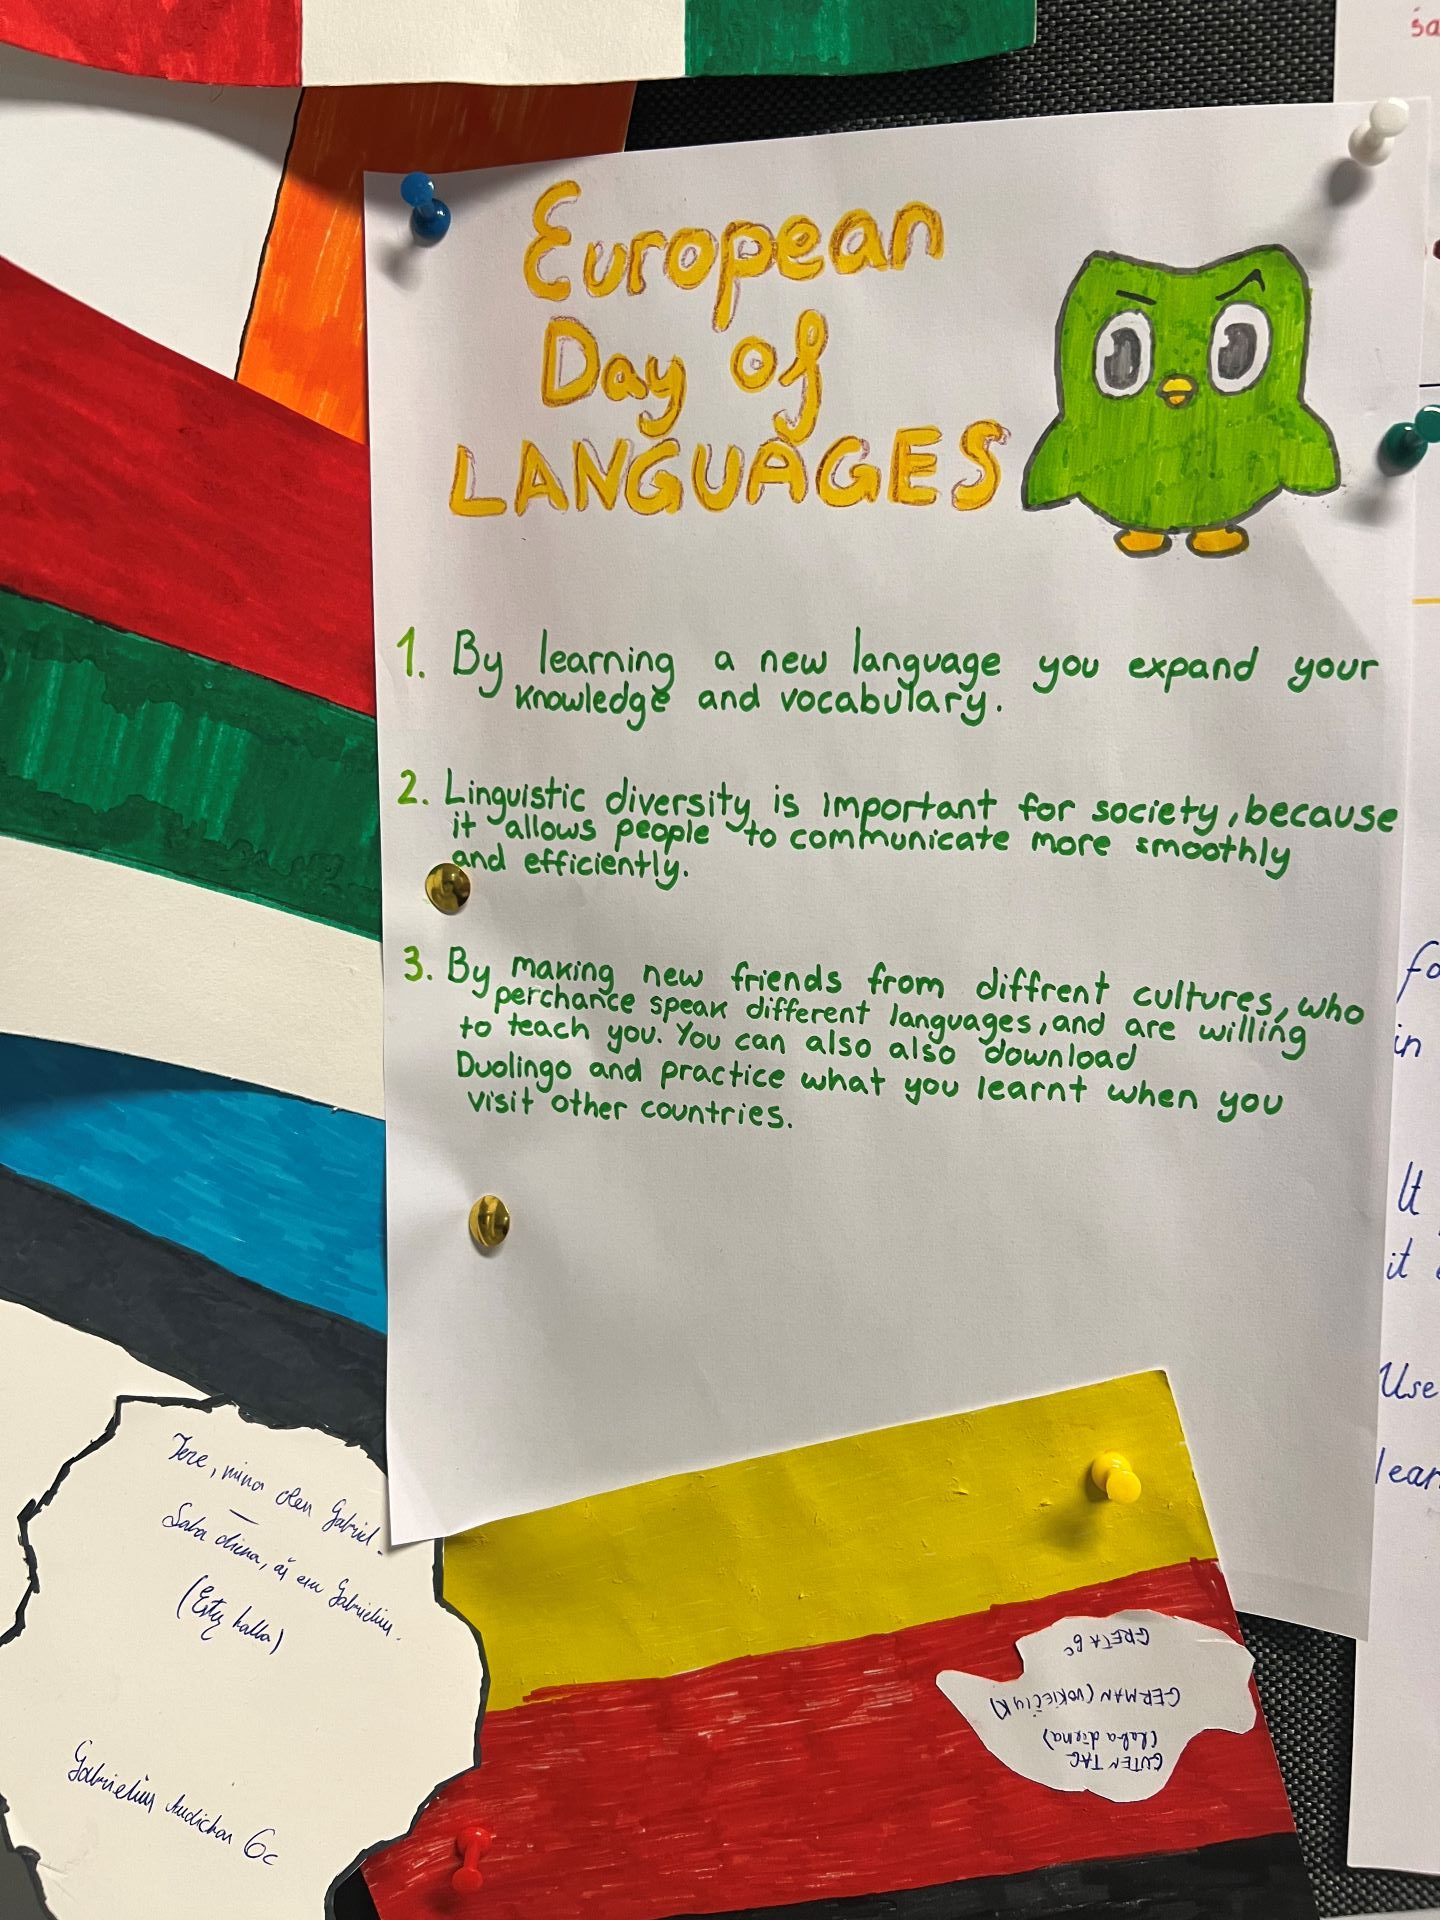 European
Day of
LANGUAGES
1. By learning a new language you expand your
knowledge and vocabulary.
2. Linguistic diversity is important for society, because
it allows people to communicate more smoothly
and efficiently.
3. By making new friends from diffrent cultures, who
perchance speak different languages, and are willing
to teach you. You can also also download
Duolingo and practice what you learnt when you
visit other countries.
Tere, mina olen Gabriel.
Laba diena, aš esu Gabrielius.
(Estų kalba)
Gabrielius 6c
GUTEN TAG
(Laba diena)
GERMAN (VOKIEČIŲ K)
GRETA 6c
fo
in
It
it
Use
lear